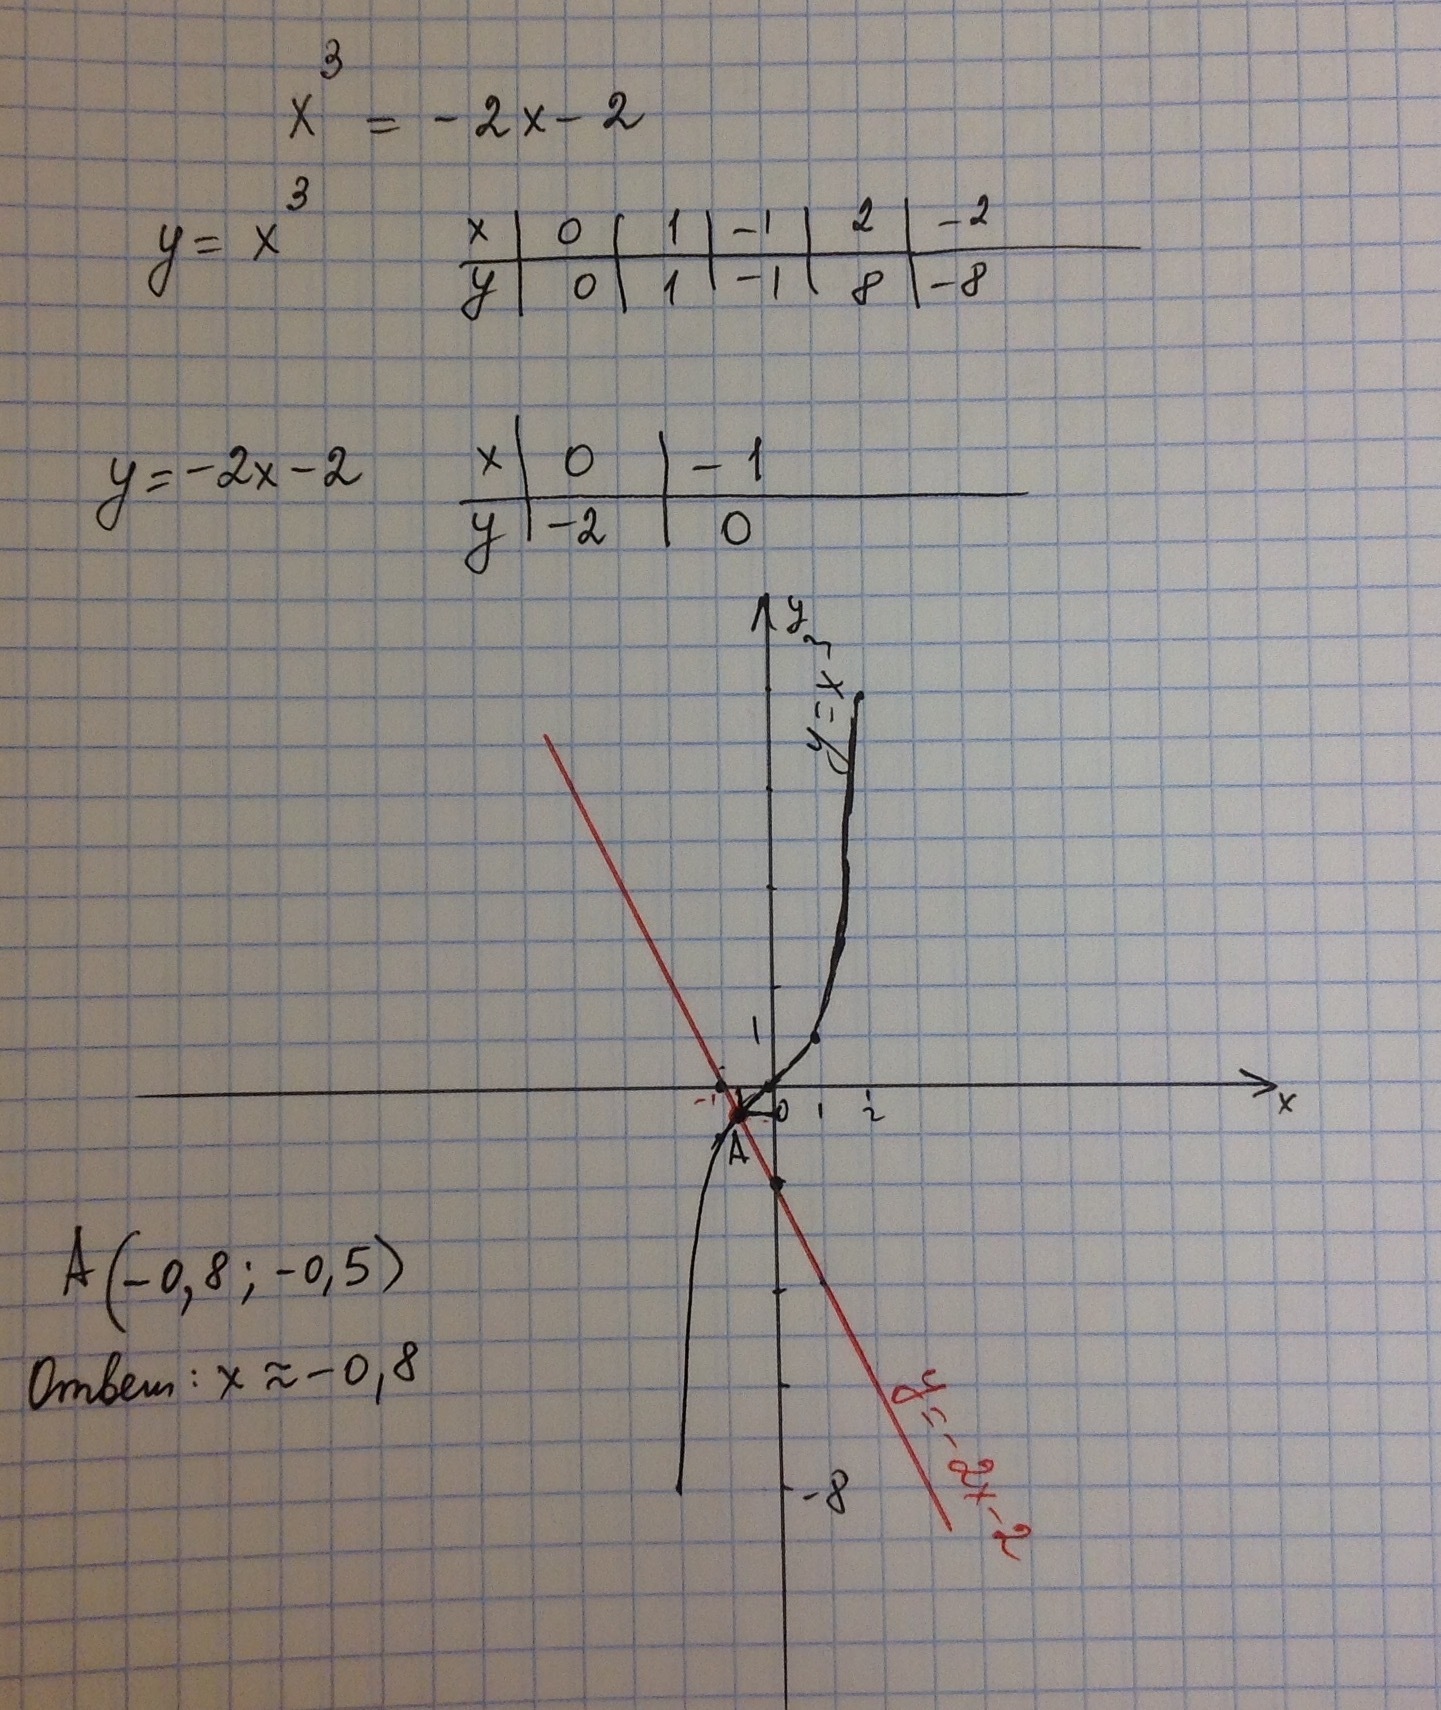 x³ = -2x-2
y = x³
x | 0 | 1 | -1 | 2 | -2
y | 0 | 1 | -1 | 8 | -8
y=-2x-2
x | 0 | -1
y | -2 | 0
y
y=x³
1
-1 0 1 2 x
A
A(-0,8; -0,5)
Ответ: x ≈ -0,8
y=-2x-2
-8